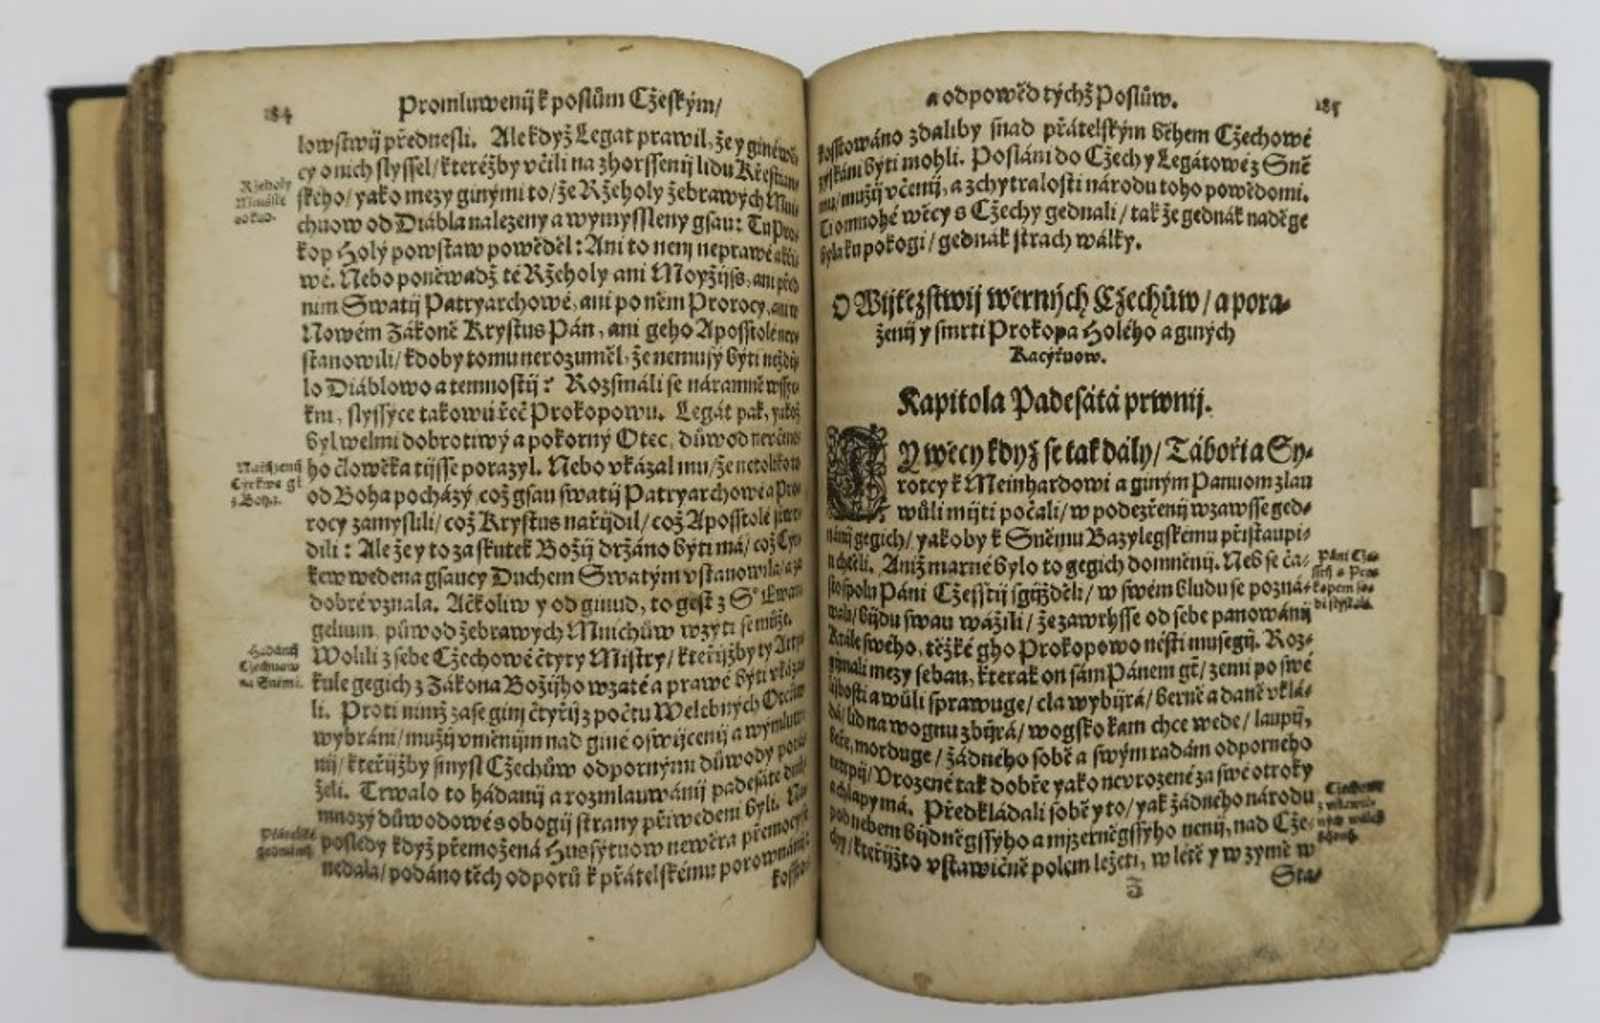 184
Promluwenij k poslům Cžeským/
lowstwij přednesli. Ale když Legat prawil, že y giné wě-
cy o nich slyssel/ kteréžby včili na zhorssenij lidu Křestian-
ského/ yako mezy ginými to/ že Ržeholy žebrawých Mni-
chuow od Diábla nalezeny a wymyssleny gsau: Tu Pro-
kop Holý powstaw powěděl: Ani to nenj neprawé
wé. Nebo poněwadž té Ržeholy ani Moyžijss, ani před
nim Swatij Patryarchowé, ani po něm Prorocy, ani w
Nowém Zákoně Krystus Pán, ani geho Aposstolé neu-
stanowili/ kdoby tomu nerozuměl, že nemusý býti
lo Diáblowo a temnostij? Rozsmáli se náramně wssy-
kni, slyssýce takowú řeč Prokopowu. Legát pak, yakož
byl welmi dobrotiwý a pokorný Otec, důwod
ho člowěka tijsse porazyl. Nebo vkázal mu/ že netoliko to
od Boha pocházý, což gsau swatij Patryarchowé a Pro-
rocy zamyslili/ což Krystus nařijdil/ což Aposstolé
dili: Ale že y to za skutek Božij držáno býti má/ což Cýr-
kew wedena gsaucy Duchem Swatým vstanowila/ a za
dobré vznala. Ačkoliw y od ginud, to gest z S° Ewan-
gelium, půwod žebrawých Mnichůw wzýti se může.
Wolili z sebe Cžechowé čtyry Mistry/ kteřijžby ty Arty-
kule gegich z Zákona Božijho wzaté a prawé býti vkáza-
li. Proti nimž zase ginj čtyřij z počtu Welebných Otcůw
wybráni/ mužij vměnijm nad giné oswijcenij a wýmluw-
nij/ kteřijžby smysl Cžechůw odpornými důwody pora-
želi. Trwalo to hádanij a rozmlauwánij padesáte dnij/
mnozý důwodowé s obogij strany přiwedeni byli. Na-
posledy když přemožená Hussýtuow newěra přemocy se
nedala/ podáno těch odporů k přátelskému porownánij
kosstowáno
Ržeholy
Hadánij
Cžechuow
na Sněmě.
Přátelské
gednánij
a odpowěd týchž Poslůw.
185
kosstowáno zdaliby snad přátelským během Cžechowé
zýskáni býti mohli. Posláni do Cžech y Legátowé z Sně-
mu/ mužij včenij, a z chytralosti národu toho powědomi.
Ti o mnohé wěcy s Cžechy gednali/ tak že gednák naděge
byla ku pokogi/ gednák strach wálky.
O Wijtězstwij wěrných Cžechůw/ a pora-
ženij y smrti Prokopa Holého a giných
Kacýřuow.
Kapitola Padesátá prwnij.
TY wěcy když se tak dály/ Táboři a Sy-
rotcy k Meinhardowi a giným Panuom zlau
wůli mijti počali/ w podezřenij wzawsse ged-
nánij gegich/ yakoby k Sněmu Bazylegskému přistaupi-
ti chtěli. Aniž marné bylo to gegich domněnij. Neb se ča-
sto spolu Páni Cžesstij sgijžděli/ w swém bludu se pozná-
wali/ bijdu swau wážili/ že zawrhsse od sebe panowánij
Krále swého, těžké gho Prokopowo nésti musegij. Roz-
gijmali mezy sebau, kterak on sám Pánem gest/ zemi po swé
lijbosti a wůli sprawuge/ cla wybijrá/ berně a daně vklá-
dá/ lid na wognu zbijrá/ wogsko kam chce wede/ laupij,
béře, morduge/ žádného sobě a swým radám odporného
netrpij/ Vrozené tak dobře yako nevrozené za swé otroky
a chlapy má. Předkládali sobě y to/ yak žádného národu
pod nebem bijdněgssýho a mizerněgssýho nenij, nad Cže-
chy/ kteřijžto vstawičně polem ležeti, w létě y w zymě w
Sta-
Páni Cže-
sstij s Pro-
kopem se-
Cžechowé